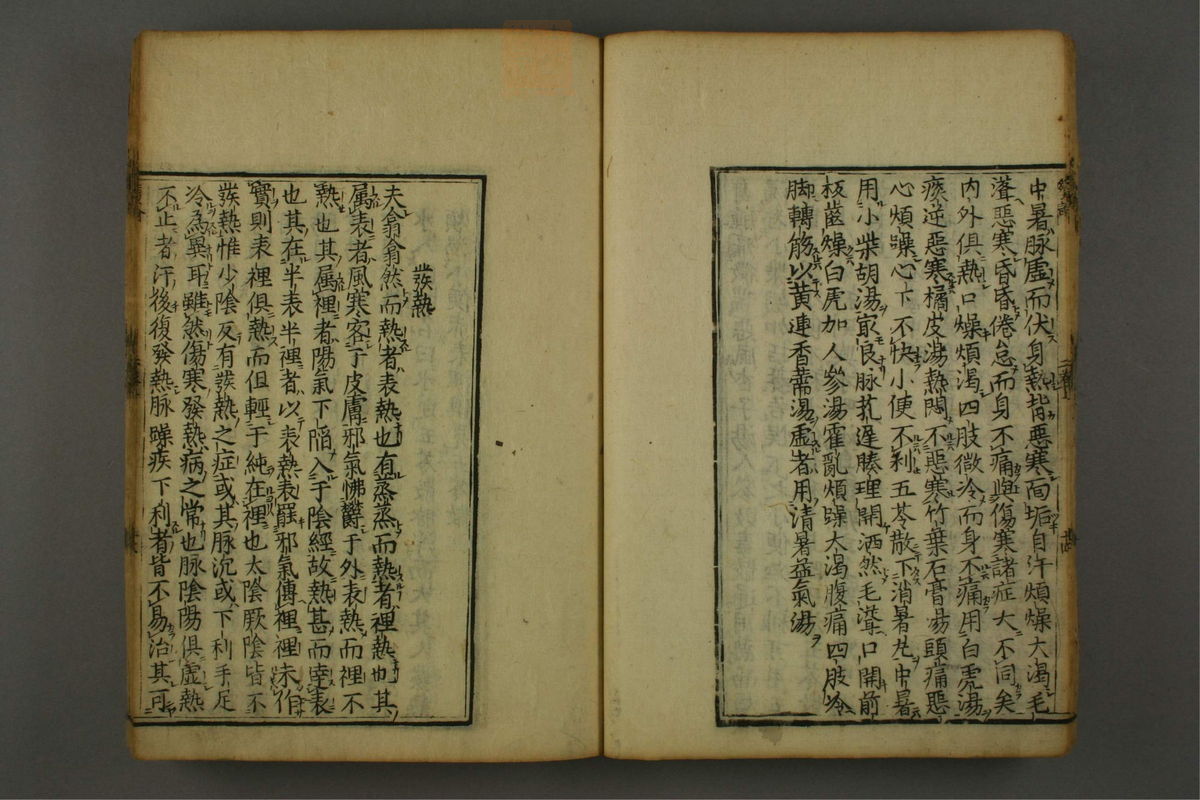 中暑脉虛而伏身熱背惡寒面垢自汗煩燥大渴毛
聳惡寒昏昏倦怠而身不痛與傷寒諸症大不同矣
内外俱熱口燥煩渴四肢微冷而身不痛用白虎湯
痰逆惡寒橘皮湯熱悶不惡寒竹葉石膏湯頭痛惡
心煩躁心下不快小便不利五苓散下消暑丸中暑
用小柴胡湯㝡良脉芤遲腠理開洒然毛聳口開前
板齒燥白虎加人參湯霍亂煩躁大渴腹痛四肢冷
脚轉筋以黄連香薷湯虛者用清暑益氣湯
發熱
夫翕翕然而熱者表熱也有蒸蒸而熱者裡熱也其
属表者風寒客于皮膚邪氣怫欝于外表熱而裡不
熱也其属裡者陽氣下陷入于陰經故熱甚而連表
也其在半表半裡者以表熱表罷邪氣傳裡裡未作
實則表裡俱熱而但輕于純在裡也太陰厥陰皆不
發熱惟少陰反有發熱之症或其脉沉或下利手足
冷為異耳雖然傷寒發熱病之常也脉陰陽俱虛熱
不止者汗後復發熱脉躁疾下利者皆不易治其可